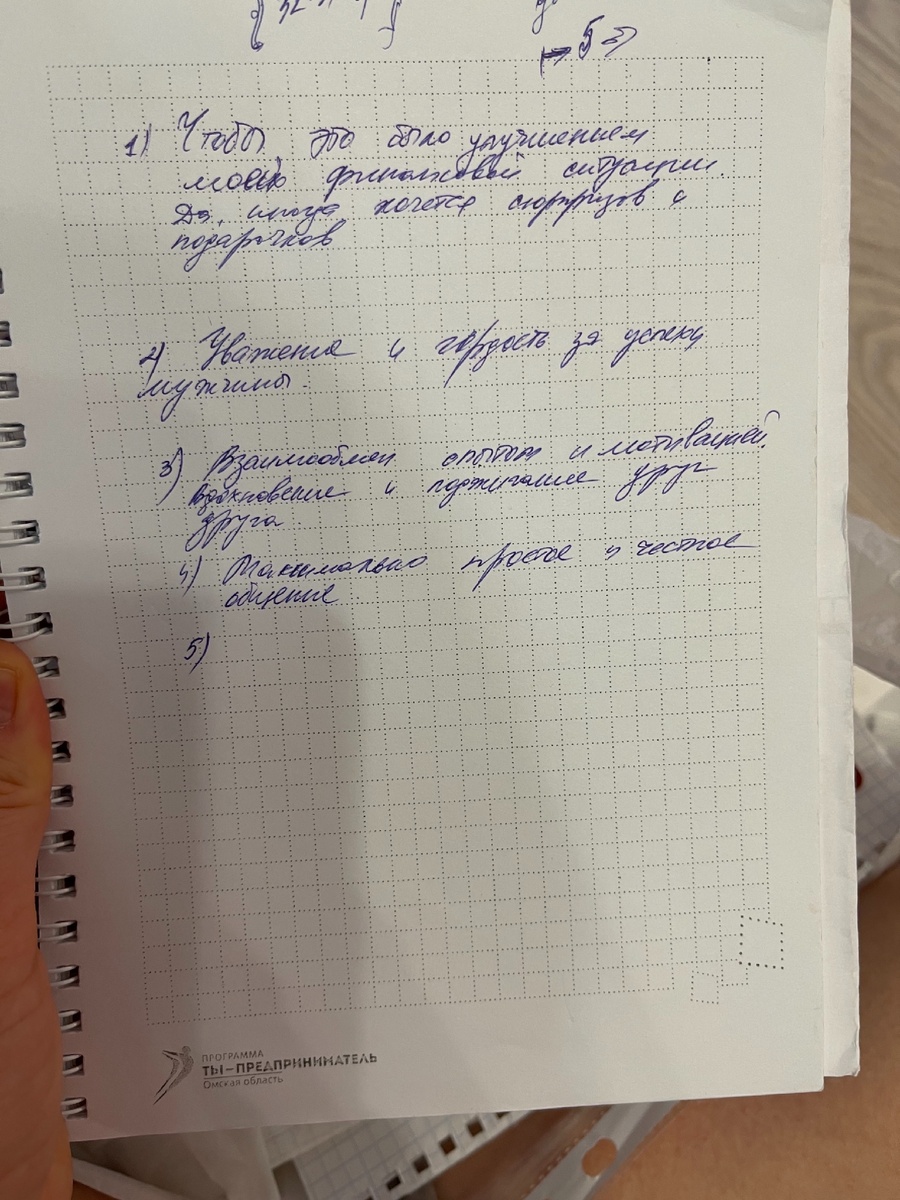 → 5
1) Чтобы это было улучшением
моей финансовой ситуации.
Да, иногда хочется сюрпризов и
подарочков
2) Уважение и гордость за успехи
мужчины.
3) Взаимообмен опытом и мотивацией.
вдохновение и поджигание друг
друга
4) Максимально простое и честное
общение
5)
ПРОГРАММА
ТЫ–ПРЕДПРИНИМАТЕЛЬ
Омская область